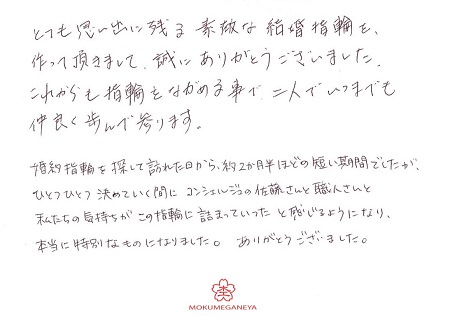 とても思い出に残る 素敵な 結婚指輪を、
作って頂きまして、誠に ありがとうございました。
これからも 指輪をながめる事で 二人でいつまでも
仲良く歩んで参ります。
婚約指輪を探して訪れた日から、約2か月半ほどの短い期間でしたが、
ひとつひとつ 決めていく間に コンシェルジュの佐藤さんと 職人さんと
私たちの気持ちが この指輪に 詰まっていった と感じるようになり、
本当に特別なものになりました。 ありがとうございました。
MOKUMEGANEYA